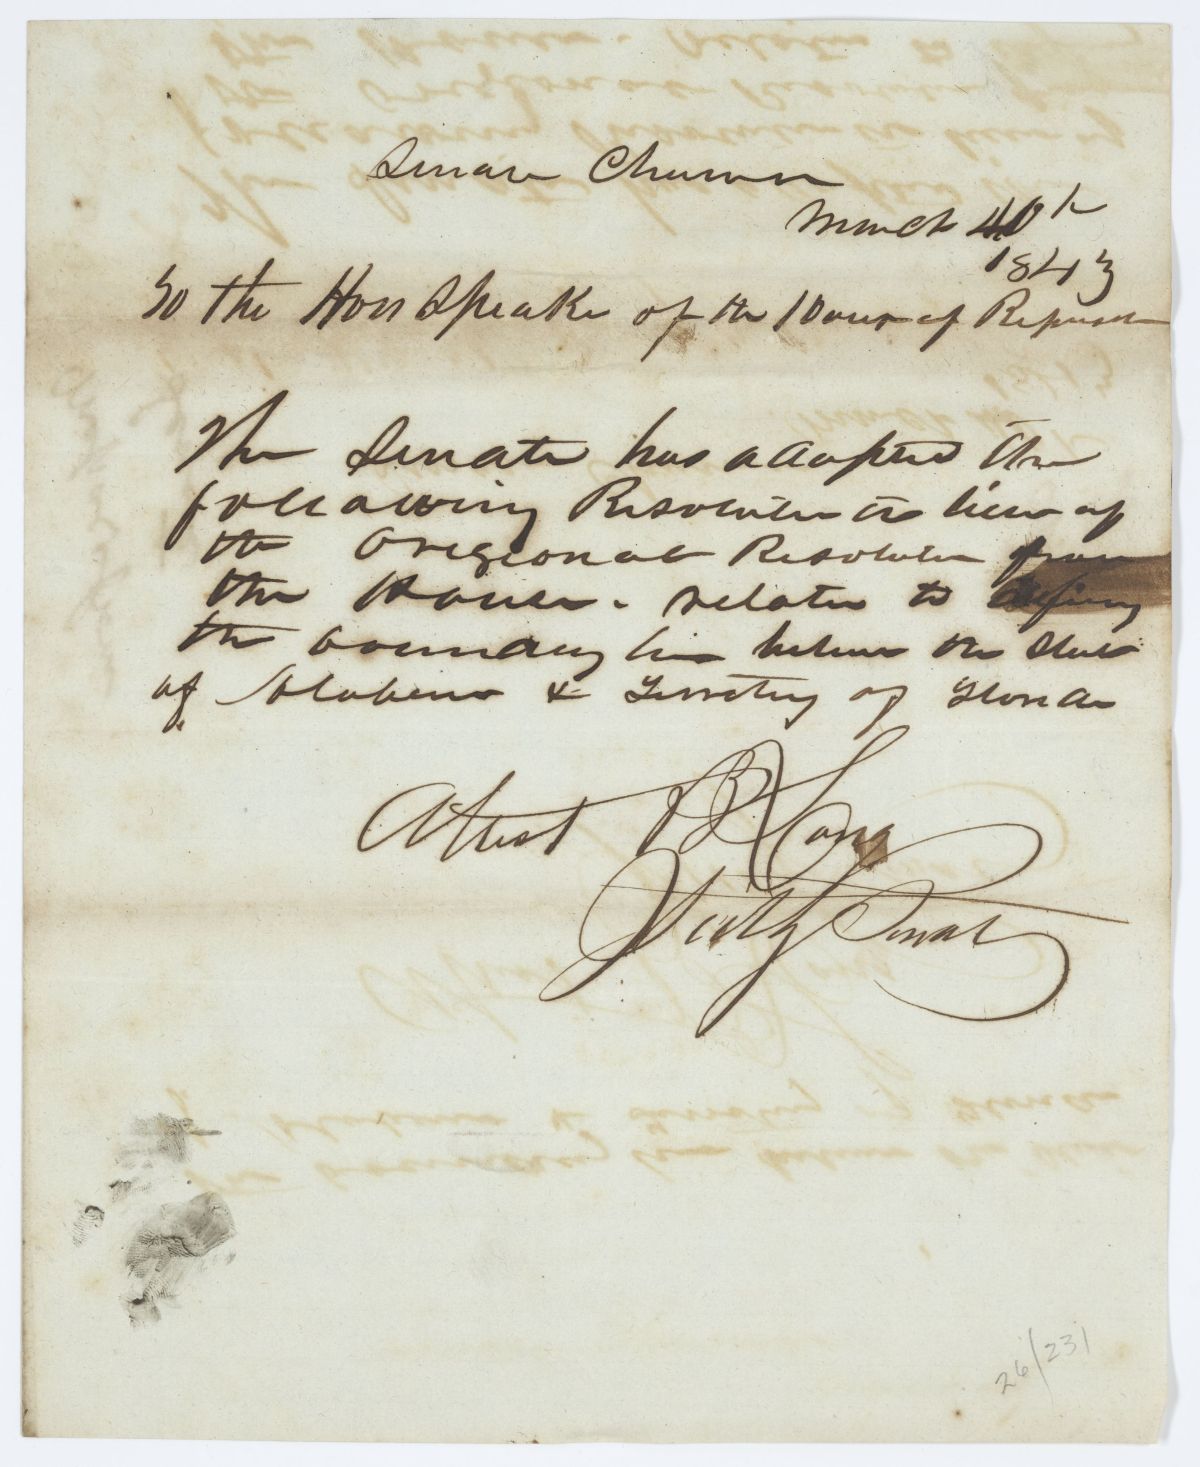 Senate Chamber
March 10th
1843
To the Hon Speaker of the House of Represen
The Senate has adopted the
following Resolution in lieu of
the Oregional Resolution from
the House. relative to defining
the boundary line between the State
of Alabama & Territory of Florida
Attest T B Long
Secty Senate
26/231